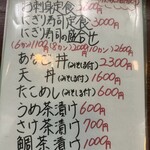 刺身定食 3000円
にぎり寿司定食 3000円
にぎり寿司の盛合せ
(6カン)1100円(8カン)2000円(10カン)2600円
あなご丼(みそしる付)2300円
天丼(みそしる付)1600円
たこめし(みそしる付)600円
うめ茶漬け 600円
さけ茶漬け 700円
鯛茶漬け 1000円